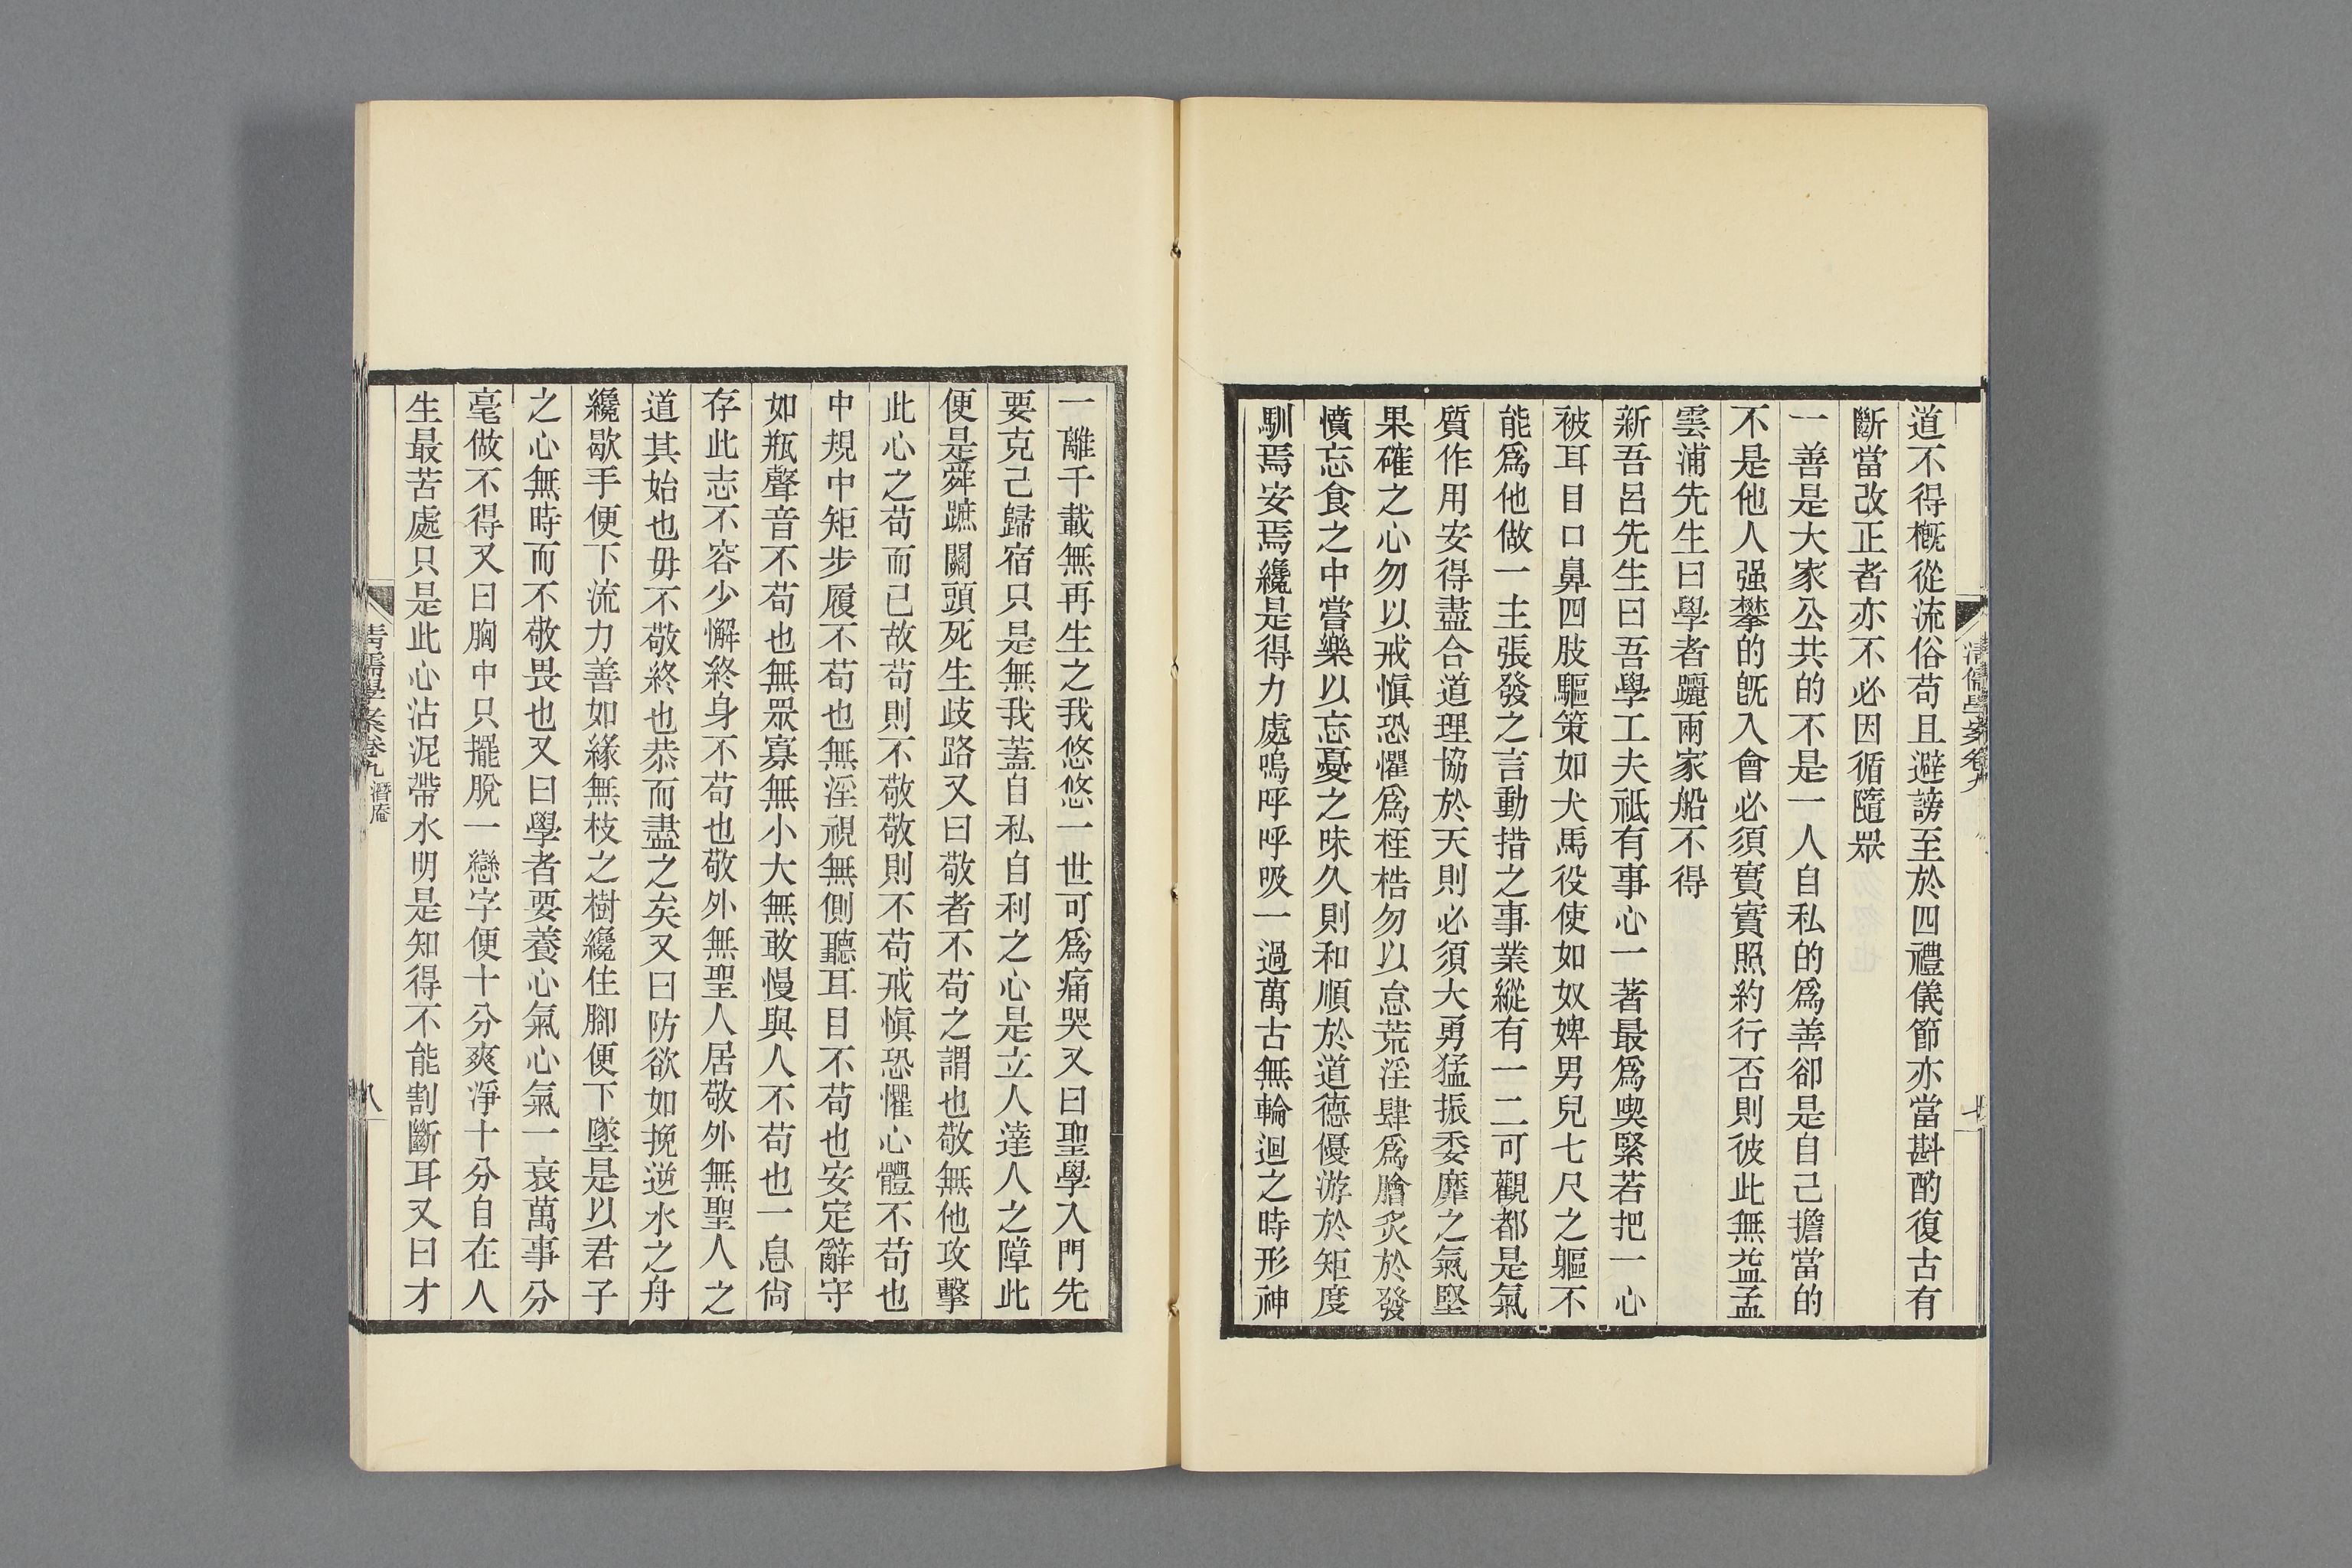 道不得槪從流俗苟且避謗至於四禮儀節亦當斟酌復古有
斷當改正者亦不必因循隨眾
一善是大家公共的不是一人自私的爲善卻是自己擔當的
不是他人强攀的旣入會必須實實照約行否則彼此無益孟
雲浦先生曰學者躧兩家船不得
新吾呂先生曰吾學工夫祗有事心一著最爲喫緊若把一心
被耳目口鼻四肢驅策如犬馬役使如奴婢男兒七尺之軀不
能爲他做一主張發之言動措之事業縱有一二可觀都是氣
質作用安得盡合道理協於天則必須大勇猛振委靡之氣堅
果確之心勿以戒愼恐懼爲桎梏勿以怠荒淫肆爲膾炙於發
憤忘食之中嘗樂以忘憂之味久則和順於道德優游於矩度
馴焉安焉纔是得力處嗚呼呼吸一過萬古無輪迴之時形神
一離千載無再生之我悠悠一世可爲痛哭又曰聖學入門先
要克己歸宿只是無我蓋自私自利之心是立人達人之障此
便是舜蹠關頭死生歧路又曰敬者不苟之謂也敬無他攻擊
此心之苟而已故苟則不敬敬則不苟戒愼恐懼心體不苟也
中規中矩步履不苟也無淫視無側聽耳目不苟也安定辭守
如瓶聲音不苟也無眾寡無小大無敢慢與人不苟也一息尙
存此志不容少懈終身不苟也敬外無聖人居敬外無聖人之
道其始也毋不敬終也恭而盡之矣又曰防欲如挽逆水之舟
纔歇手便下流力善如緣無枝之樹纔住腳便下墜是以君子
之心無時而不敬畏也又曰學者要養心氣心氣一衰萬事分
毫做不得又曰胸中只擺脫一戀字便十分爽淨十分自在人
生最苦處只是此心沾泥帶水明是知得不能割斷耳又曰才
清儒學案卷九 潛庵
八